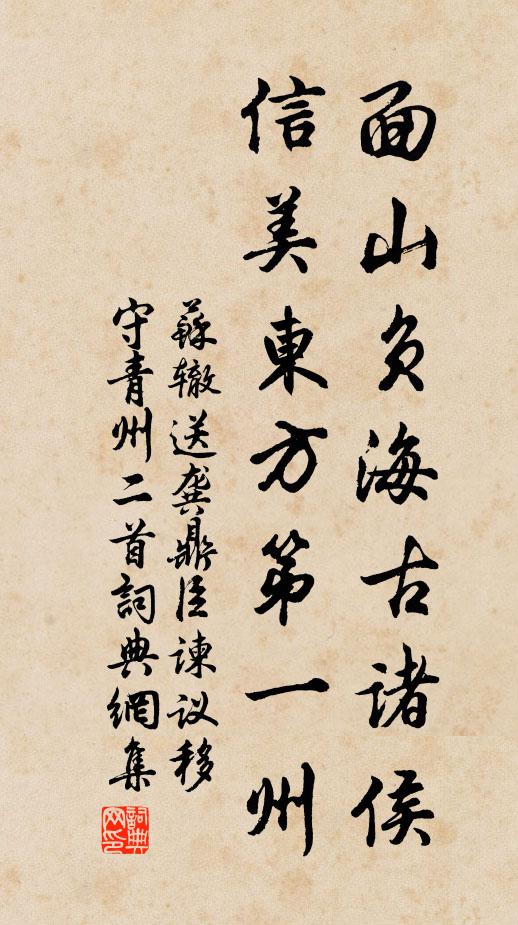 面山负海古诸侯
信美東方第一州
蘇辙送龚鼎臣谏议移
守青州二首詞典網集
詞典网印